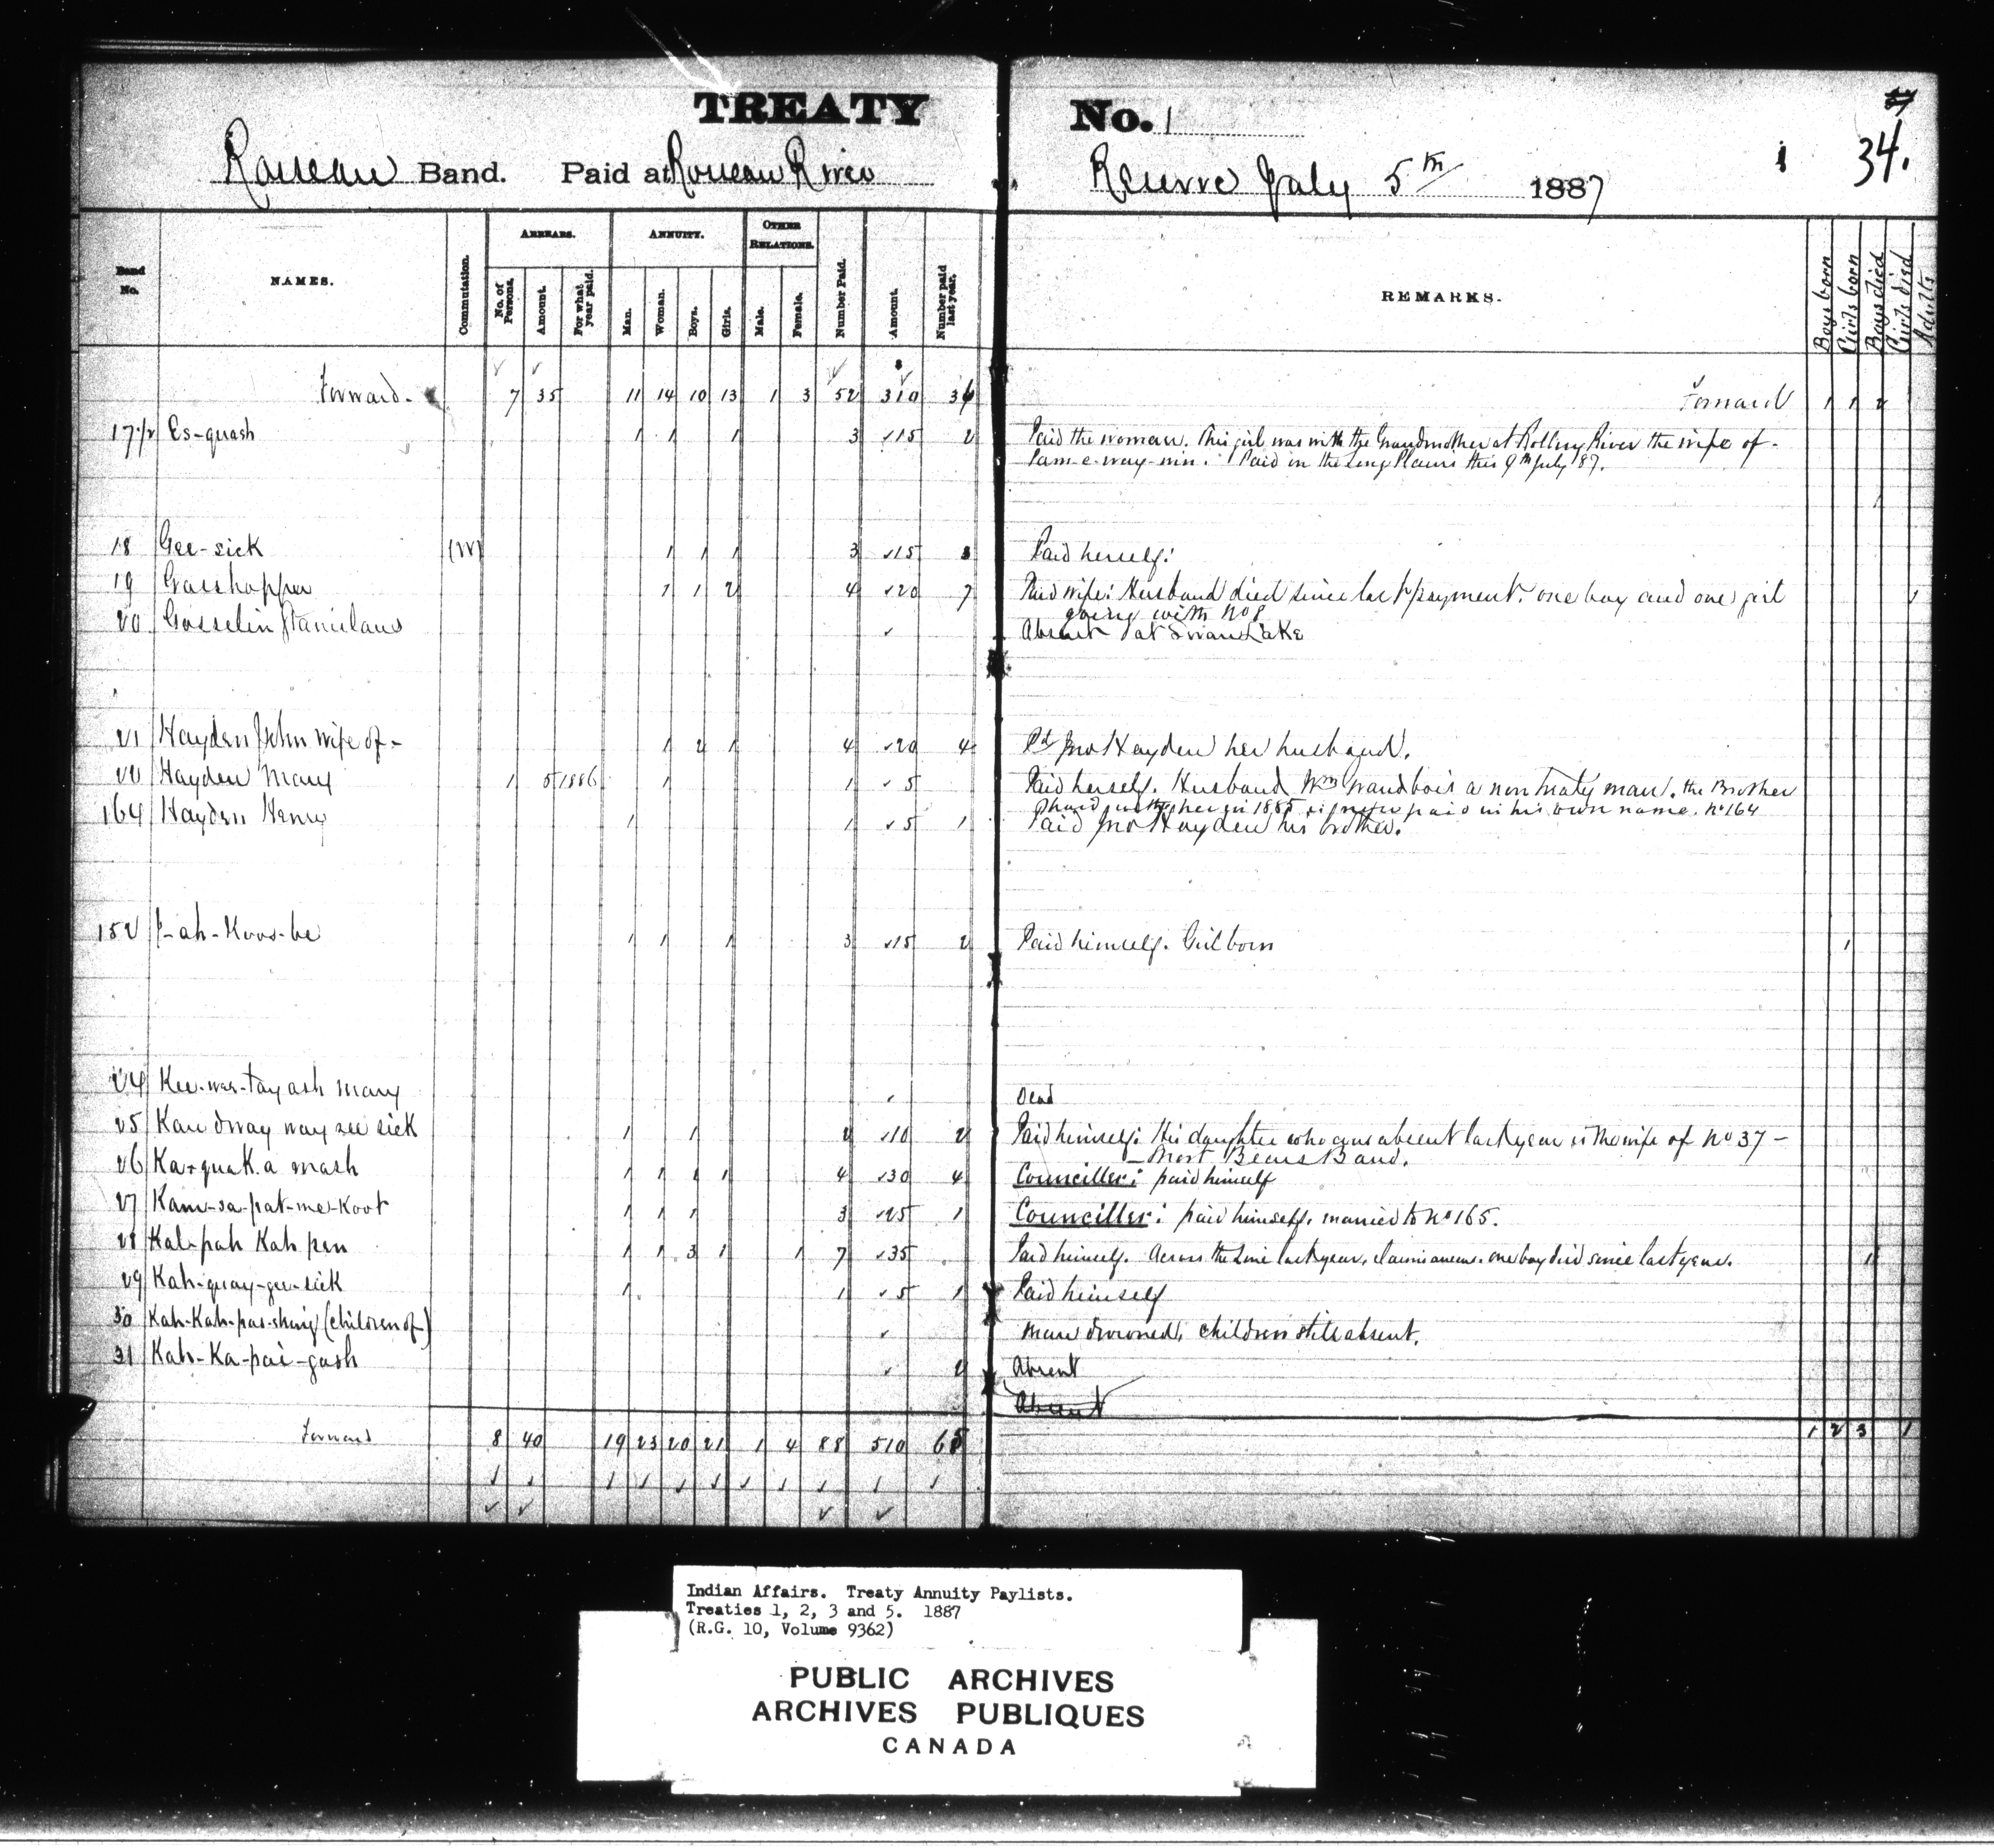 TREATY No. 1
34.
Roseau Band. Paid at Roseau River Reserve July 5th 1887
Band No. NAMES. Commutation. ARREARS. No. of Persons. Amount. For what year paid. ANNUITY. Man. Woman. Boys. Girls. OTHER RELATIONS. Male. Female. Number Paid. Amount. Number paid last year. REMARKS. Boys born Girls born Boys died Girls died Adults
Forward. 7 35 11 14 10 13 1 3 52 310 36 Forward 1 1 2
17 1/2 Es-quash 1 1 1 3 15 2 Paid the woman. This girl was with the Grandmother at Rolling River the wife of -
Pam-e-way-min. Paid in the Long Plains this 9th July 87.
1
18 Gee-sick (W) 1 1 1 3 15 3 Paid herself.
19 Grasshopper 1 1 2 4 20 7 Paid wife: Husband died since last payment. one boy and one girl 1
going with No 8
20 Gosselin Stanislaus Absent at Swan Lake
21 Hayden John wife of - 1 2 1 4 20 4 Pd Jno Hayden her husband.
22 Hayden Mary 1 5 1886 1 1 5 Paid herself. Husband Wm Grandbois a non treaty man. the Brother
paid with her in 1885 is now paid in his own name. No 164
164 Hayden Henry 1 1 5 1 Paid Jno Hayden his brother.
152 I-ah-Koos-be 1 1 1 3 15 2 Paid himself. Girl born 1
24 Kee-wee-tay ash Mary Dead
25 Kau dway way zee sick 1 1 2 10 2 Paid himself: His daughter who was absent last year is the wife of No 37 -
- Short Bears Band.
26 Ka-quak.a mash 1 1 1 1 4 30 4 Counciller: paid himself
27 Kam-sa-pat-me-Koot 1 1 1 3 25 1 Counciller: paid himself, married to No 165.
28 Kal-pah Kah pen 1 1 3 1 1 7 35 Paid himself. Across the Line last year, claims arrears. one boy died since last year. 1
29 Kah-quay-gee-sick 1 1 5 1 Paid himself
30 Kah-Kah-pas-shing (children of) Man drowned, children still absent.
31 Kah-Ka-pai-gash 2 Absent
Absent
Forward 8 40 19 23 20 21 1 4 88 510 65 1 2 3 1
Indian Affairs. Treaty Annuity Paylists.
Treaties 1, 2, 3 and 5. 1887
(R.G. 10, Volume 9362)
PUBLIC ARCHIVES
ARCHIVES PUBLIQUES
CANADA